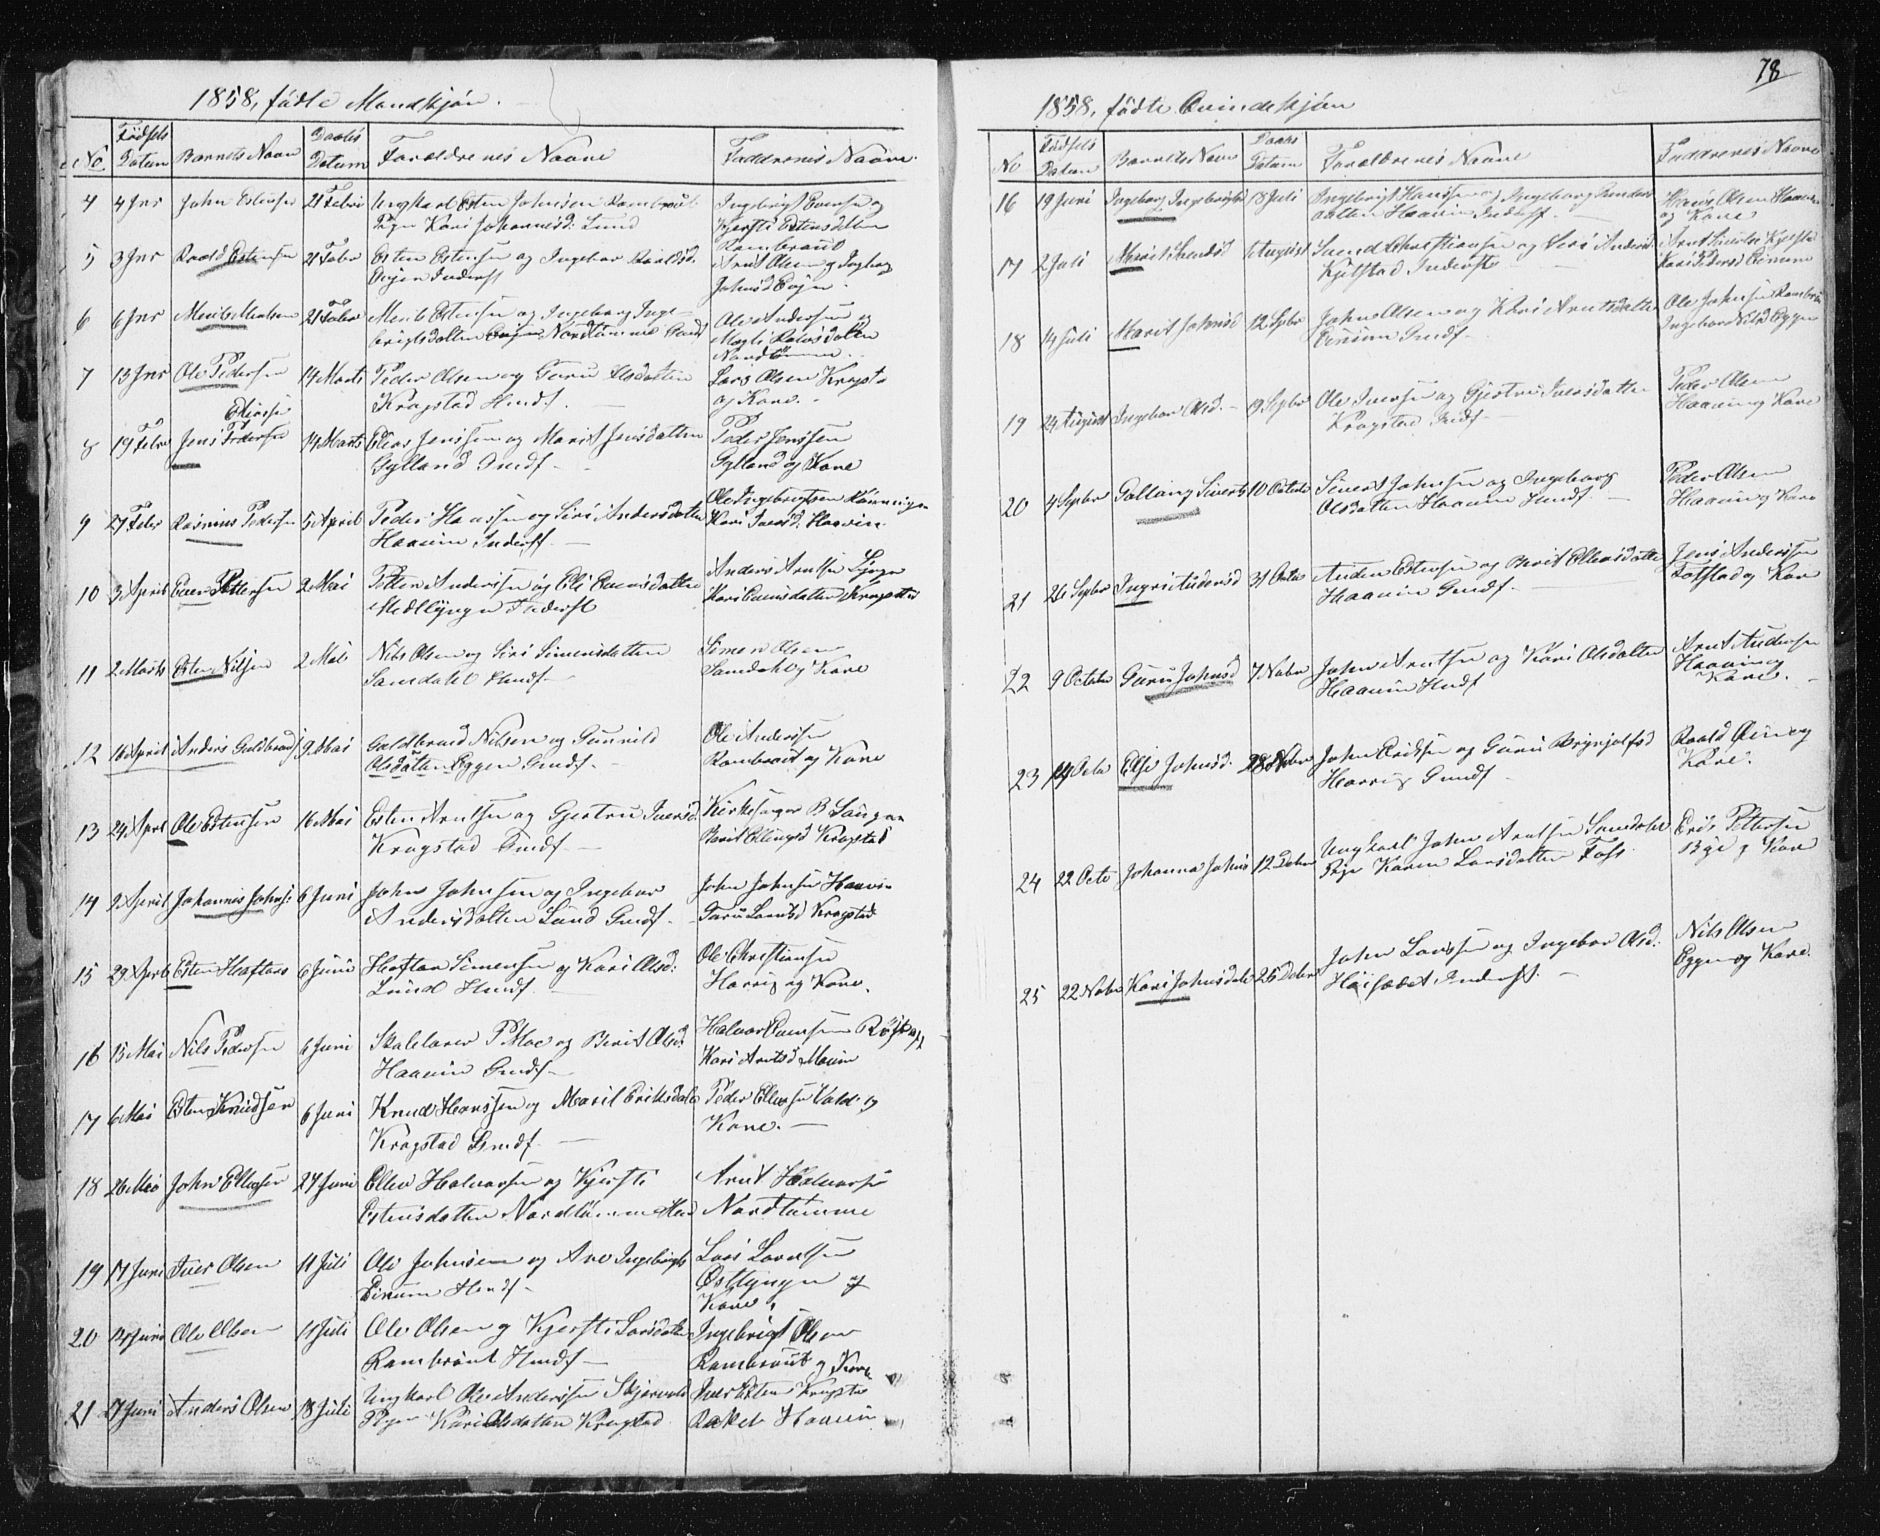 78
1858, födte Mandkjön.
No
Födsels Datum
Barnets Navn
Daabs Datum
Forældrenes Navne
Faddrenes Navne.
4 4 Jnr John Estensen 21 Febr Ungkarl Esten Johnsen Rambraut
Pigen Kari Johannesd: Lund
Ingebrigt Evensen og
Kjersti Estensdatter
Rambraut
5 3 Jnr Roald Estensen 21 Febr Esten Estensen og Ingebor Roaldsd.
Evjen Inderst
Arnt Olsen og Ingebor
Johnsd Evjen.
6 6 Jnr Merit 21 Febr Estensen og Ingeborg Inge-
brigtsdatter Nordtømme
Ole Andersen og
Larsdatter
Nordtømme.
7 13 Jnr Ole Pedersen 14 Marts Peder Olsen og Guru Olsdatter
Kragstad Huusf.
Lars Olsen Kragsta
og Kone.
8 19 Febr Jens Eliassen 14 Marts Elias Jenssen og Marit Jensdatter
Gylland Gmdf.
Peder Jenssen
Gylland og Kone
9 27 Febr Rasmus Pedersen 5 April Peder Hanssen og Siri Andersdatter
Haauin Inderst.
Ole Ingebrigtsen
Kari Iversd. Haavin
10 3 April Even Pettersen 2 Mai Petter Anderssen og Eli Evensdatter
Inderst
Anders Arntsen
Kari Evensdatter Kragsta
11 2 Marts Esten Nilsen 2 Mai Nils Olsen og Siri Simensdatter
Samdahl Huusf.
Simen Olsen
Samdahl og Kone
12 16 April Anders Guldbrands 9 Mai Guldbrand Nilsen og Gunnild
Olsdatter Eggen Gmdf.
Ole Andersen
Rambraut og Kone
13 24 April Ole Estensen 16 Mai Esten Arntsen og Gjertru Iversd.
Kragstad Gmdf.
Kirkesanger B Saugen
Berit Ellingsd Kragstad
14 2 April Johannes Johns: 6 Juni John Johnsen og Ingebor
Andersdatter Lund Gmdf.
John Johnsen Haavin
Guru Larsd Kragstad
15 29 April Esten Haftors 6 Juni Haftor Simensen og Kari Olsd:
Lund Huusf.
Ole Christiansen
Harrig og Kone.
16 13 Mai Nils Pedersen 6 Juni Skolelærer P Moe og Berit Olsd:
Haauin Gmdf.
Halvor
Kari Arntsd Haauin
17 6 Mai Esten Knudsen 6 Juni Knud Hanssen og Marit Eriksdatter
Kragstad Gmdf.
Peder Ellevsen Vold og
Kone.
18 26 Mai John Ellevsen 27 Juni Ellev Halvorsen og Kjersti
Estensdatter Nordtømme
Arnt Halvorsen
Nordtømme
19 17 Juni Iver Olsen 11 Juli Ole Johnsen og Ane Ingebrigts
Einum Huusf.
Lars Larssen
og
Kone.
20 Juni Ole Olsen 11 Juli Ole Olsen og Kjersti Larsdatter
Rambraut Huusf.
Ingebrigt Olsen
Rambraut og Kone
21 27 Juni Anders Olsen 18 Juli Ungkarl Ole Anderssen
Pigen Kari Olsdatter Kragstad
Iver Esten Kragsta
Haauin
1858, födte Qvindekjön
No
Födsels Datum
Barnets Navn
Daabs Datum
Forældrenes Navne
Faddrenes Navne
16 19 Juni Ingeborg Ingebrigts 18 Juli Ingebrigt Hanssen og Ingeborg
datter Haauin Inderst.
Hans Olsen Haauin
og Kone
17 2 Juli Marit Svendsd 1 August Svend Christiansen og Siri Andersd
Kjelstad Inderst
Kari Pedersd Einum
18 14 Juli Marit Johnsd 12 Sepbr John Olsen og Kari Arntsdatter
Einum Gmdf.
Ole Johnsen Rambraut
Ingebor Nilsd Eggen
19 24 August Ingebor Olsd. 19 Sepbr Ole Iversen og Gjertru Iversdatter
Kragstad Indf.
Peder Olsen
Haauin og Kone
20 4 Sepbr Sivertsd 10 Octobr Sivert Johnsen og Ingeborg
Olsdatter Haauin Huusf.
Peder Olsen
Haauin og Kone
21 26 Sepbr Ingri 31 Octbr Estensen og Berit Ellevsdatter
Haauin Gmdf.
Jens Anderssen
og Kone
22 9 Octobr Guru Johnsd 7 Nobr John Arntsen og Kari Olsdatter
Haauin Huusf
Arnt Andersen
Haauin og
Kone.
23 Octbr Elsi Johnsd. 28 Nobr John Eriksen og Guru Brynjolfsd
Harrig Gmdf
Roald
Kone.
24 22 Octb Johanna Johns 12 Debr Ungkarl John Arntsen Samdahl
Pige Karen Larsdatter Foss.
Erik Pettersen
og Kone
25 22 Nobr Kari Johnsdatt 26 Debr John Larssen og Ingebor Olsd:
Høisæter Inderst.
Nils Olsen
Eggen og Kone.